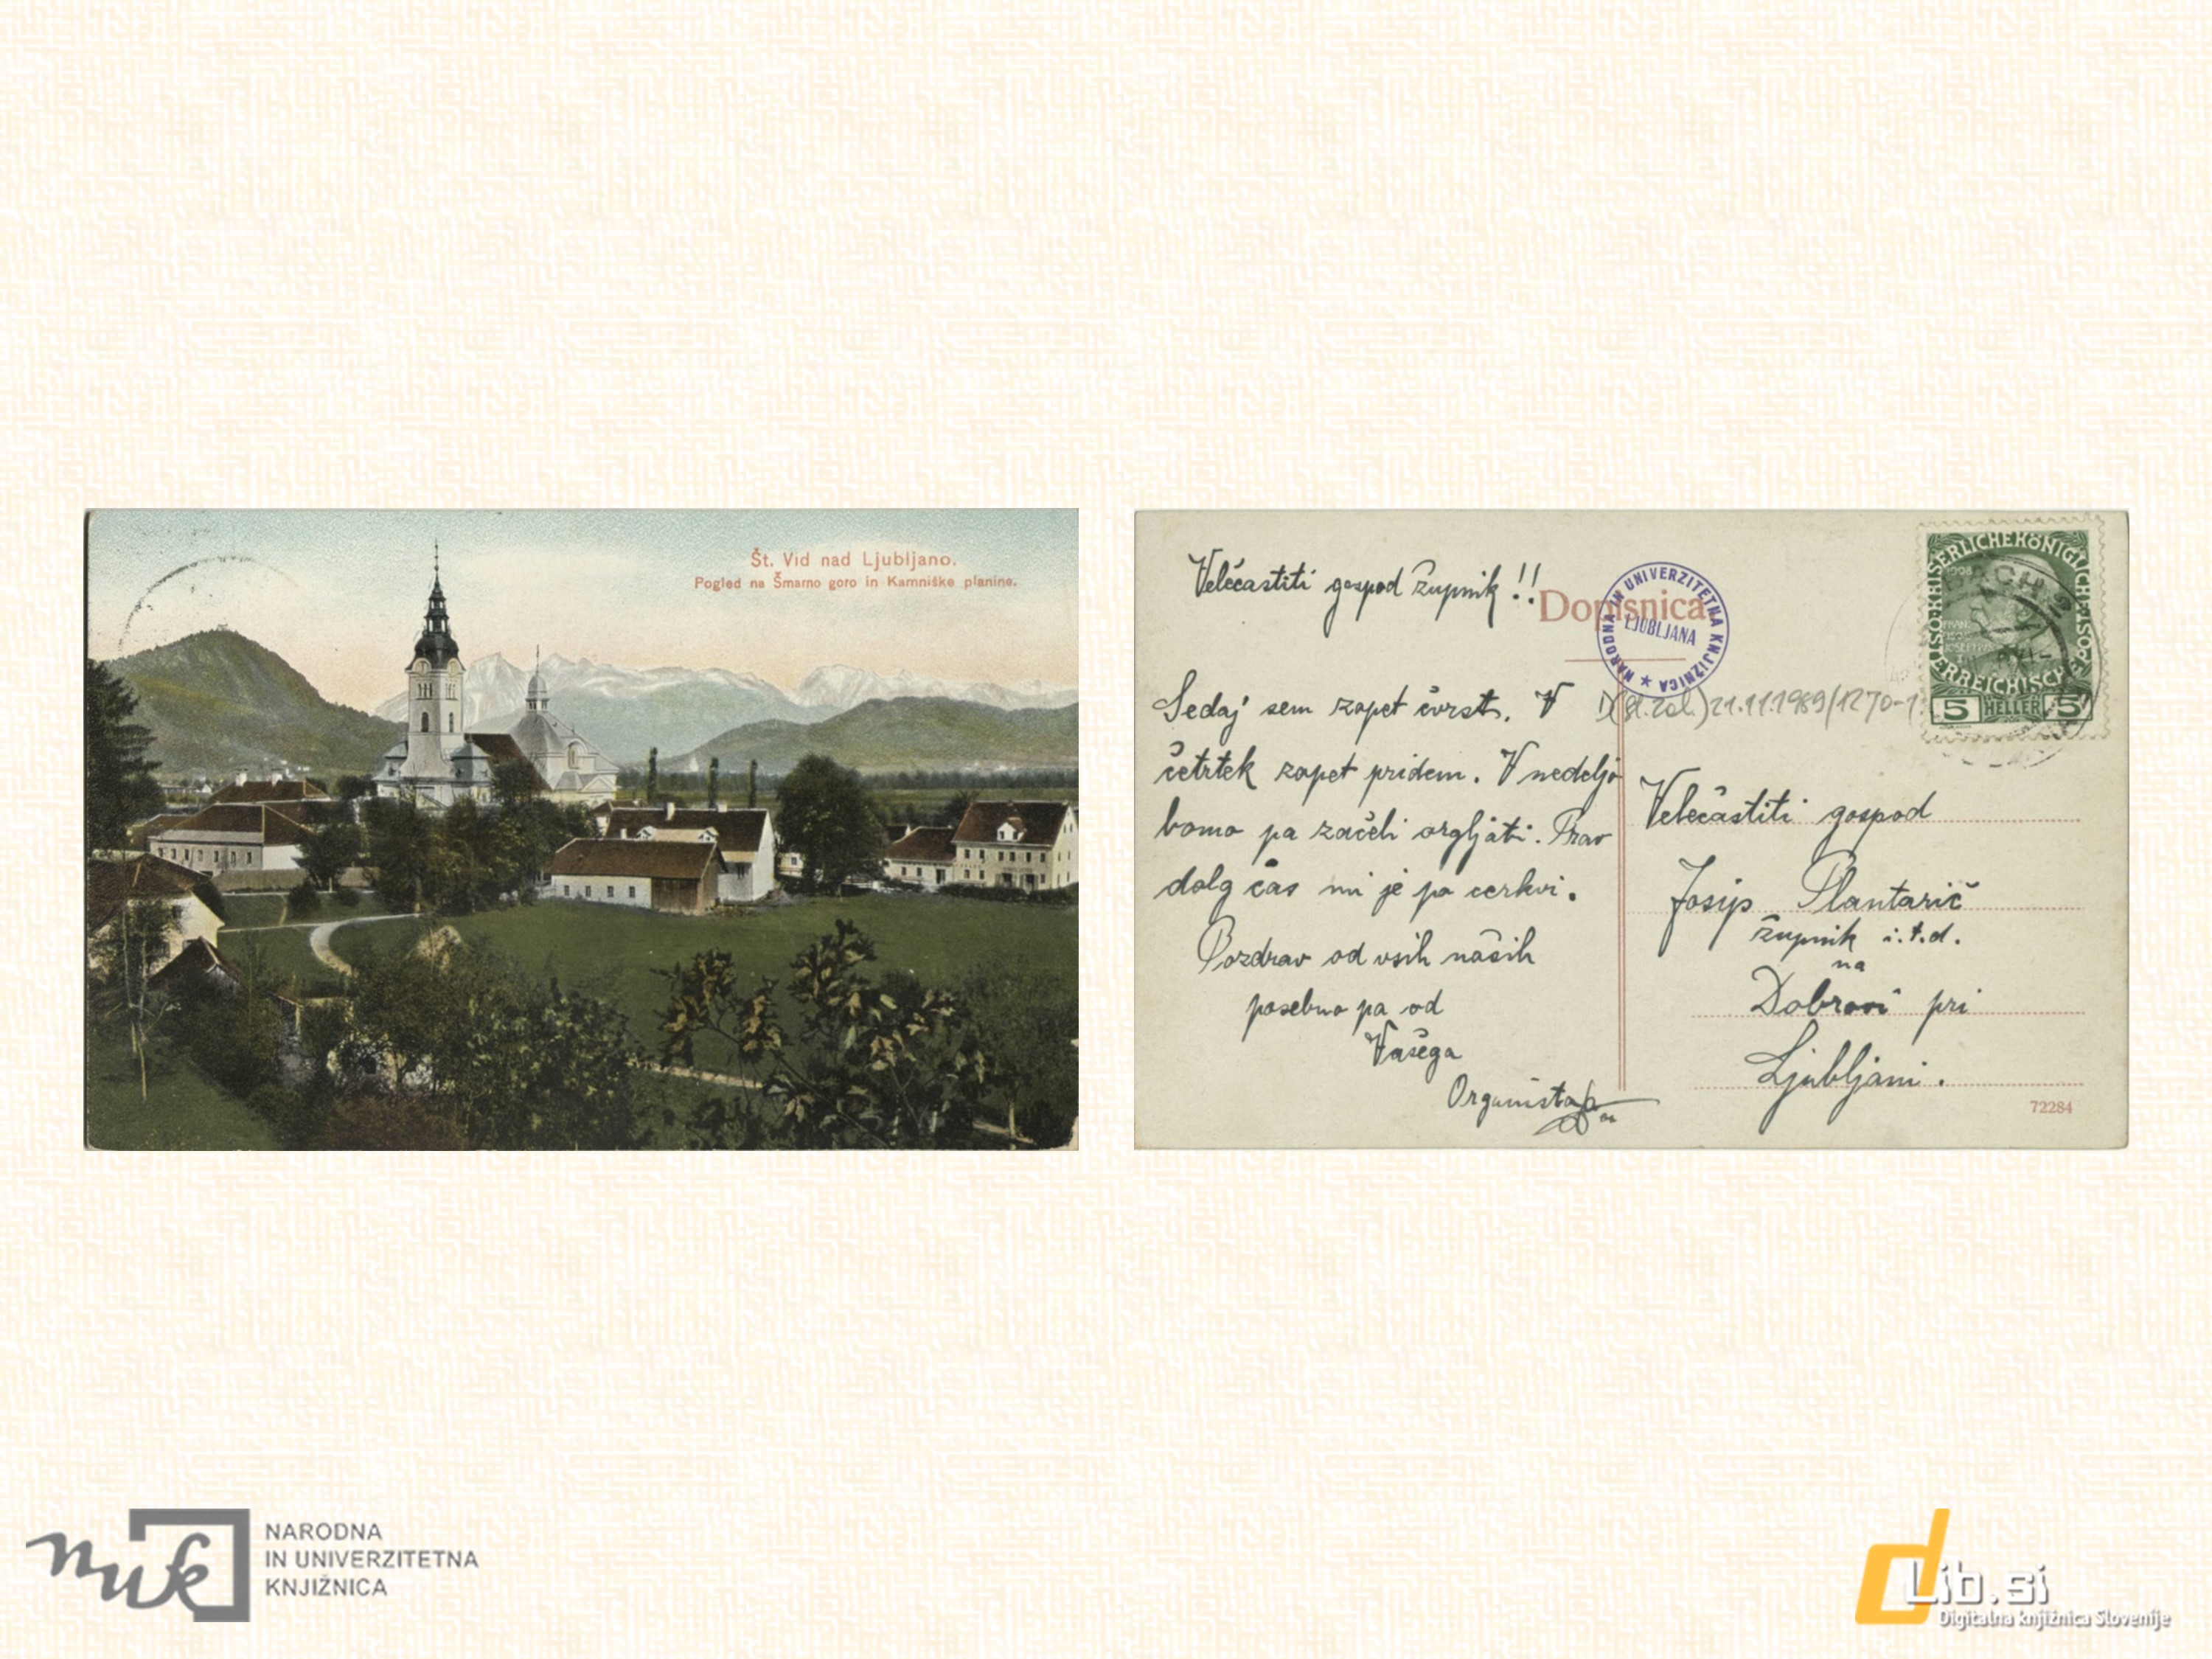 Št. Vid nad Ljubljano.
Pogled na Šmarno goro in Kamniške planine.
Velečastiti gospod župnik!!
Dopisnica
NARODNA IN UNIVERZITETNA KNJIŽNICA
LJUBLJANA
Sedaj sem zopet čvrst. V
četrtek zopet pridem. V nedeljo
bomo pa začeli orgljati. Prav
dolg čas mi je po cerkvi.
Pozdrav od vsih naših
posebno pa od
Vašega
Organista
D(sl. zal.) 21.11.1989/1270-1
KAISERLICHEKÖNIGLICHE POST
ÖSTERREICHISCHE
1908
5 HELLER 5
Velečastiti gospod
Josip Plantarič
župnik i.t.d.
na
Dobrovi pri
Ljubljani.
72284
nuk
NARODNA
IN UNIVERZITETNA
KNJIŽNICA
dLib.si
Digitalna knjižnica Slovenije